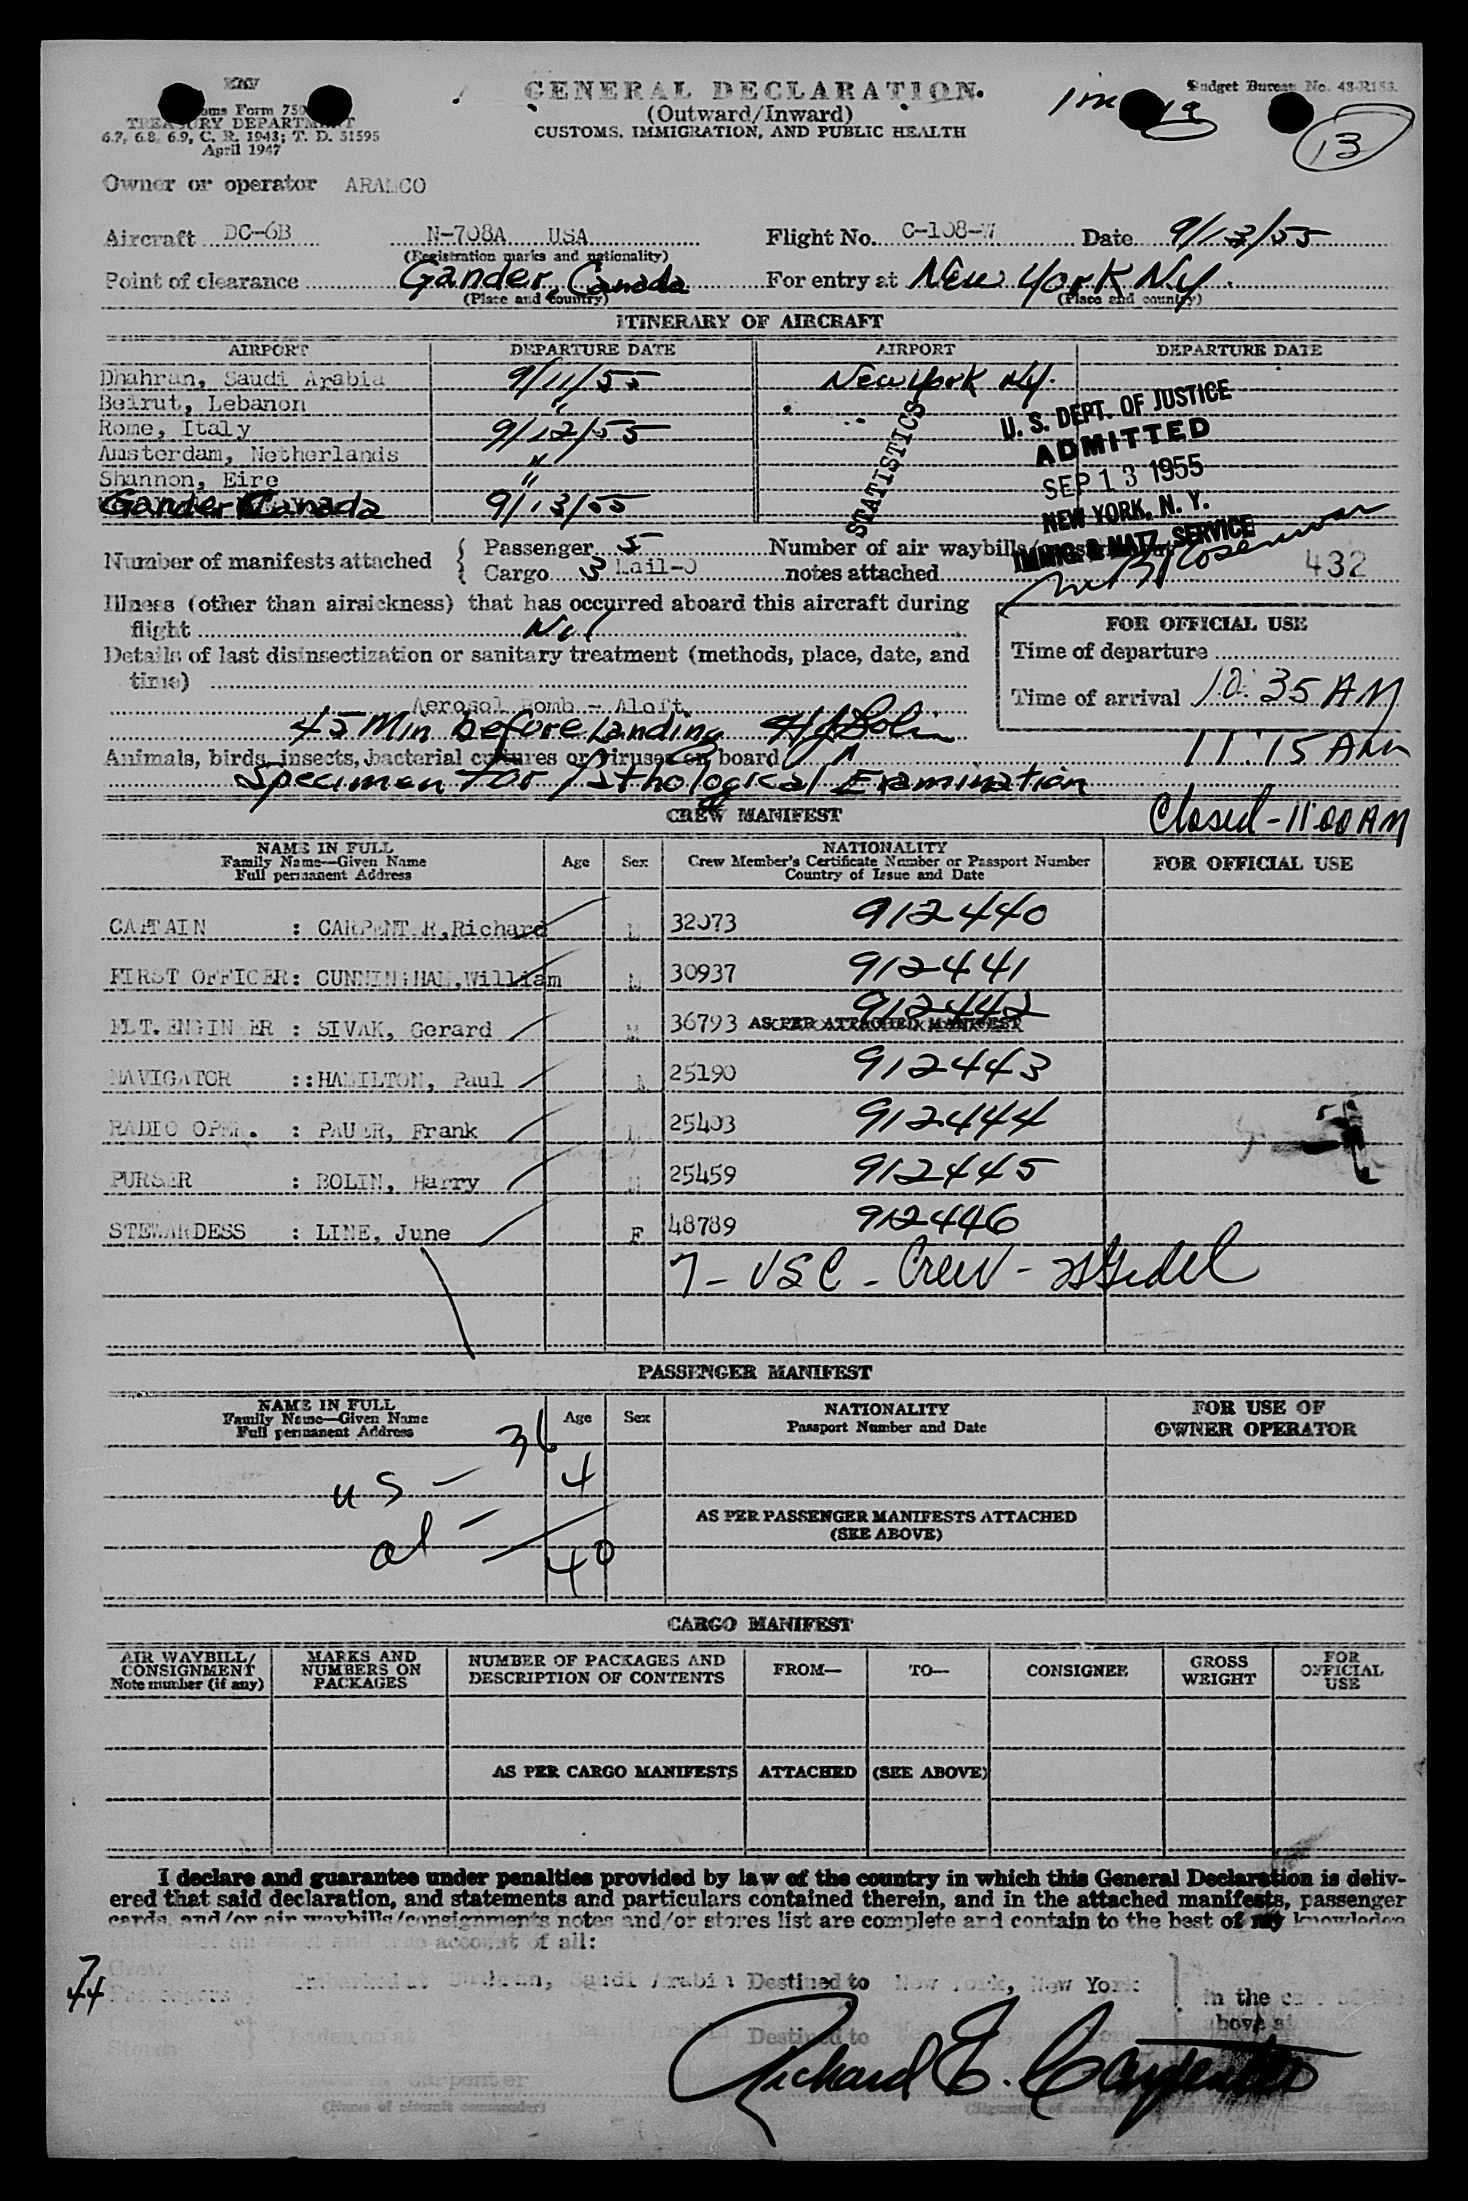 GENERAL DECLARATION
(Outward/Inward)
CUSTOMS, IMMIGRATION, AND PUBLIC HEALTH
Form 750
TREASURY DEPARTMENT
6.7, 6.8, 6.9, C. R. 1943; T. D. 51595
April 1947
Budget Bureau No. 48-R153.
13
Owner or operator ARAMCO
Aircraft DC-6B N-708A USA Flight No. C-108-W Date 9/13/55
(Registration marks and nationality)
Point of clearance Gander, Canada For entry at New York NY.
(Place and country) (Place and country)
ITINERARY OF AIRCRAFT
AIRPORT DEPARTURE DATE AIRPORT DEPARTURE DATE
Dhahran, Saudi Arabia 9/11/55 New York NY.
Beirut, Lebanon "
Rome, Italy 9/12/55
Amsterdam, Netherlands "
Shannon, Eire "
Gander Canada 9/13/55
STATISTICS
U. S. DEPT. OF JUSTICE
ADMITTED
SEP 13 1955
NEW YORK, N. Y.
IMMIG. & NATZ. SERVICE
Number of manifests attached { Passenger 5 Number of air waybills/
Cargo 3 Mail-0 notes attached 432
Illness (other than airsickness) that has occurred aboard this aircraft during
flight Nil
Details of last disinsectization or sanitary treatment (methods, place, date, and
time)
Aerosol Bomb - Aloft
45 Min before landing
FOR OFFICIAL USE
Time of departure
Time of arrival 10:35 AM
11:15 AM
Animals, birds, insects, bacterial cultures or viruses on board
Specimen for Pathological Examination
Closed - 11:00 AM
CREW MANIFEST
NAME IN FULL
Family Name—Given Name
Full permanent Address
Age Sex
NATIONALITY
Crew Member's Certificate Number or Passport Number
Country of Issue and Date
FOR OFFICIAL USE
CAPTAIN : CARPENTER,Richard M 32073 912440
FIRST OFFICER: CUNNINGHAM,William M 30937 912441
FLT.ENGINEER : SIVAK, Gerard M 36793 AS PER ATTACHED MANIFEST 912442
NAVIGATOR ::HAMILTON, Paul M 25190 912443
RADIO OPER. : PAUER, Frank M 25403 912444
PURSER : BOLIN, Harry M 25459 912445
STEWARDESS : LINE, June F 48789 912446
7 - USC - Crew -
PASSENGER MANIFEST
NAME IN FULL
Family Name—Given Name
Full permanent Address
Age Sex
NATIONALITY
Passport Number and Date
FOR USE OF
OWNER OPERATOR
US - 36
al - 4
40
AS PER PASSENGER MANIFESTS ATTACHED
(SEE ABOVE)
CARGO MANIFEST
AIR WAYBILL/
CONSIGNMENT
Note number (if any)
MARKS AND
NUMBERS ON
PACKAGES
NUMBER OF PACKAGES AND
DESCRIPTION OF CONTENTS
FROM— TO— CONSIGNEE
GROSS
WEIGHT
FOR
OFFICIAL
USE
AS PER CARGO MANIFESTS ATTACHED (SEE ABOVE)
I declare and guarantee under penalties provided by law of the country in which this General Declaration is deliv-
ered that said declaration, and statements and particulars contained therein, and in the attached manifests, passenger
cards, and/or air waybills/consignments notes and/or stores list are complete and contain to the best of my knowledge
account of all:
7 Crew
44 Passengers
Embarked at Dhahran, Saudi Arabia Destined to New York, New York
in the
above
Destined to
Carpenter
Richard E. Carpenter
(Name of aircraft commander)